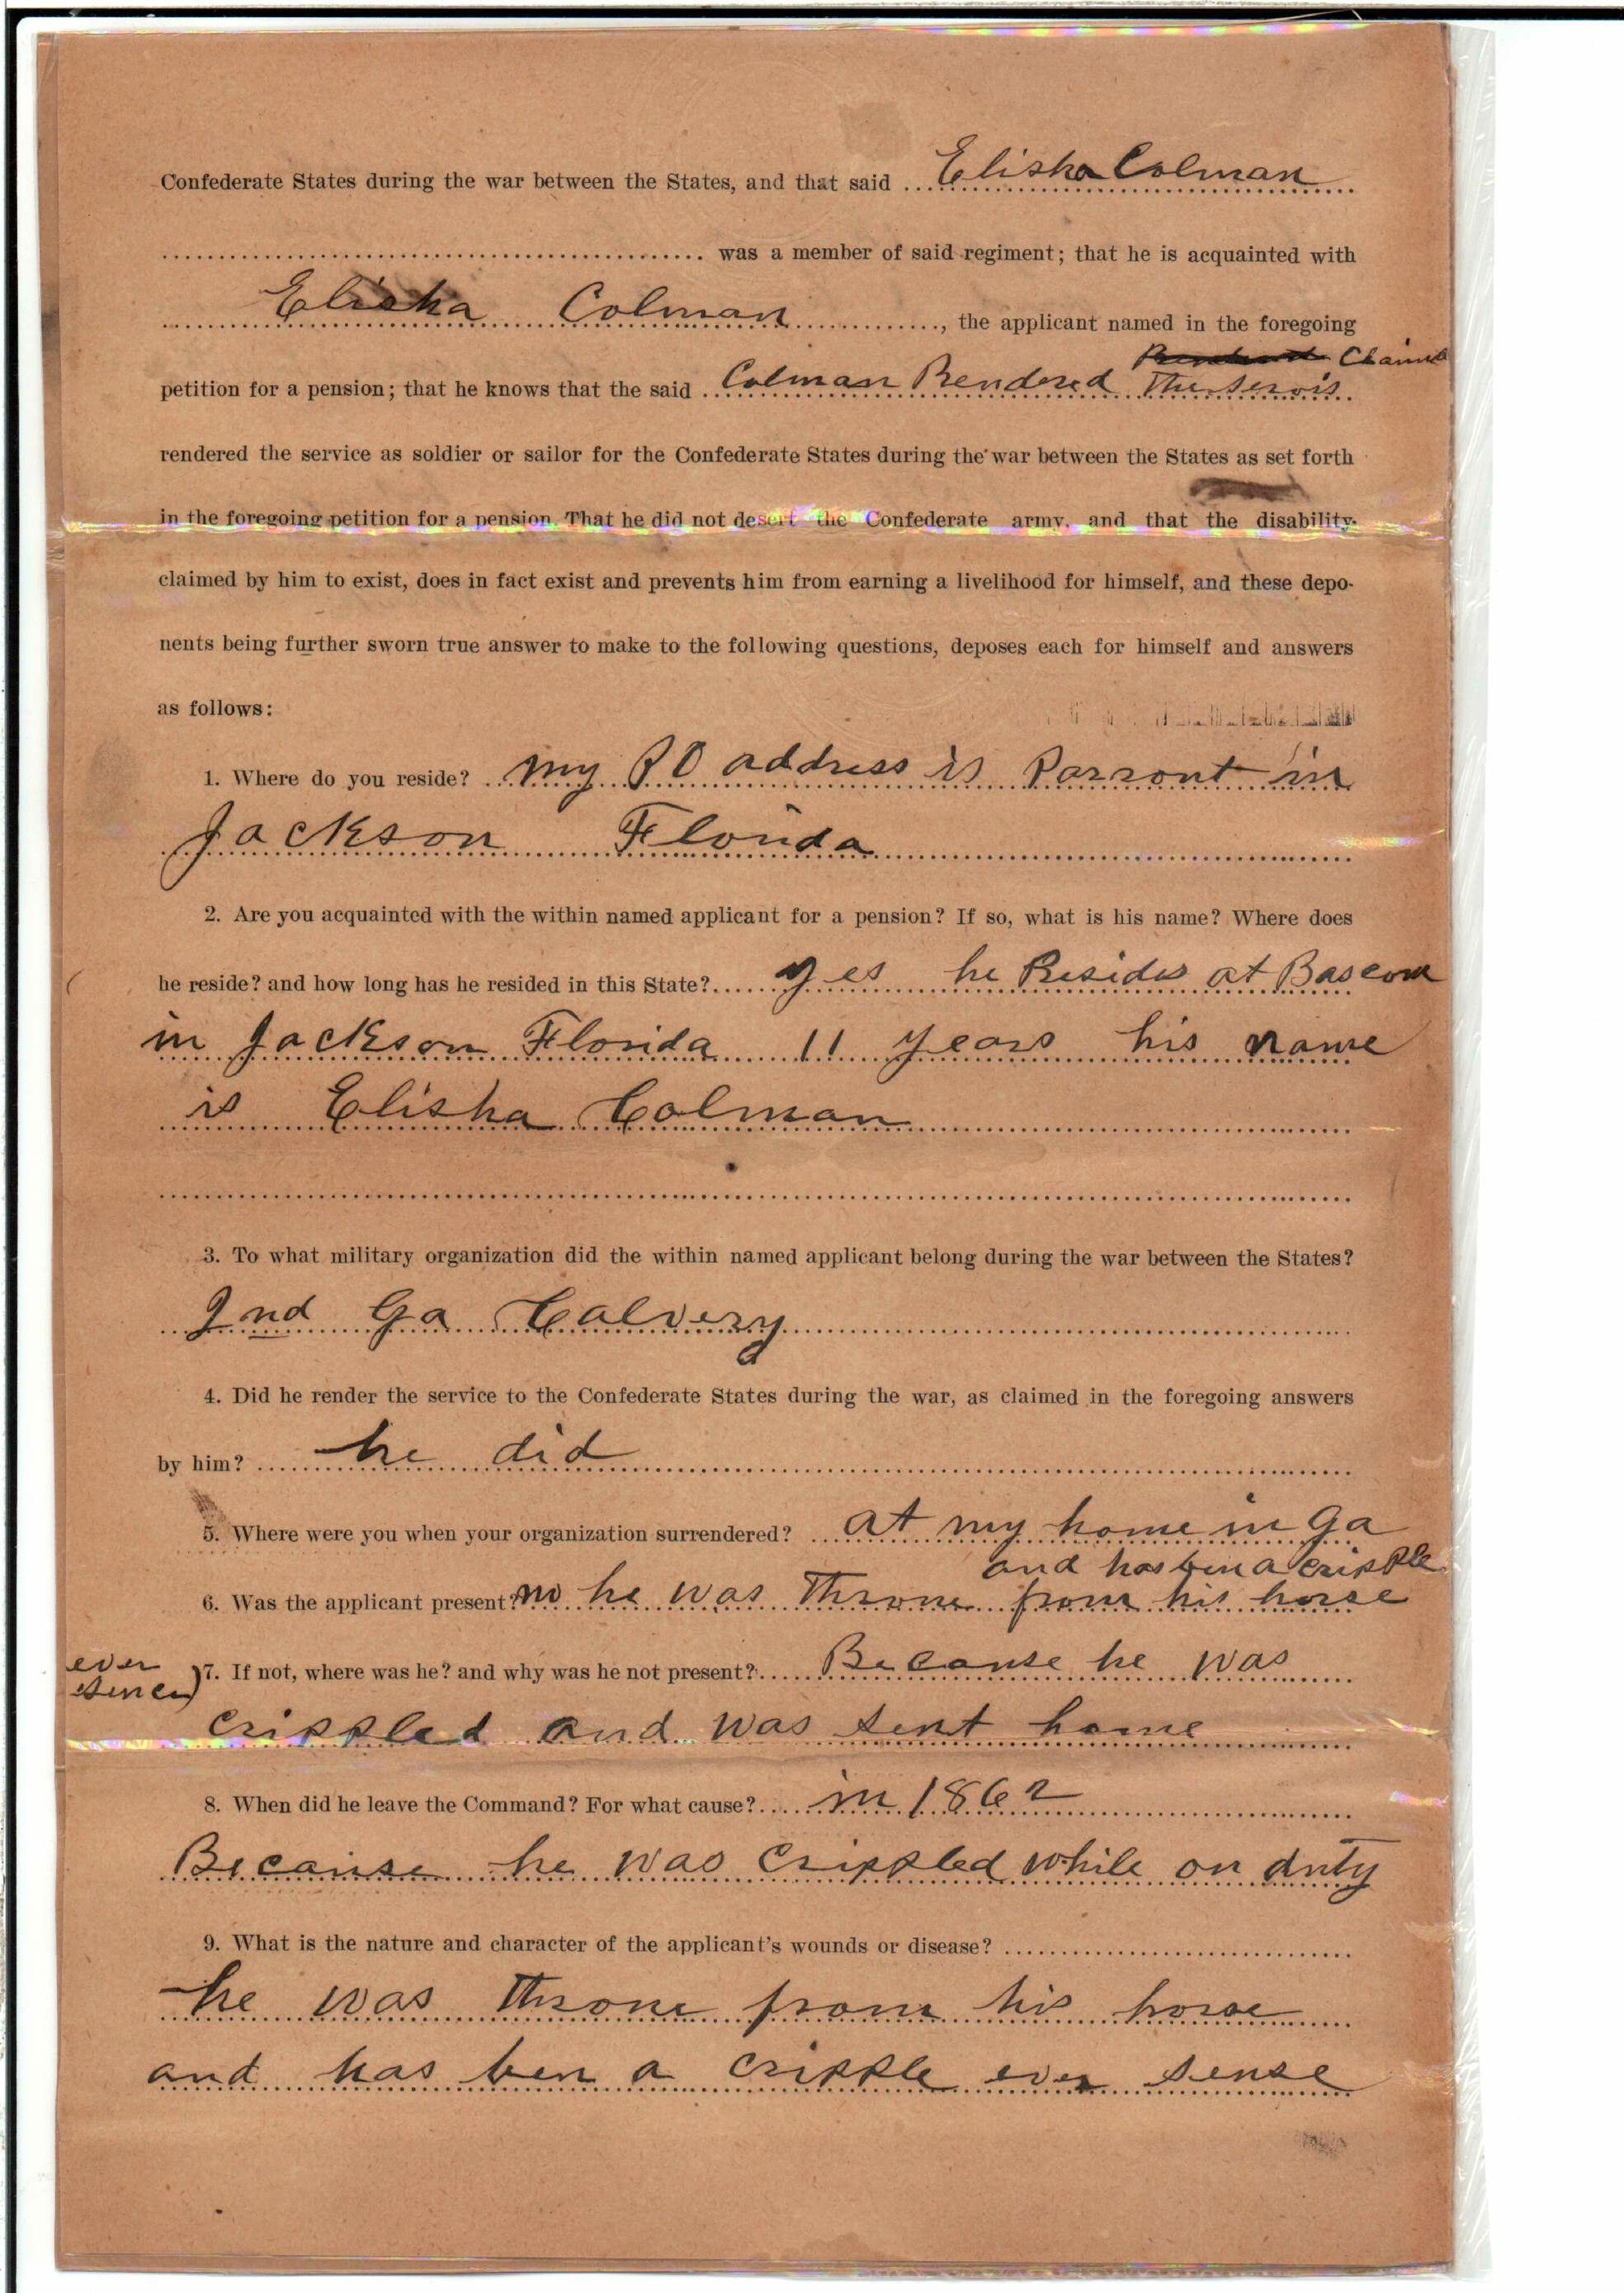 Confederate States during the war between the States, and that said Elisha Colman
was a member of said regiment; that he is acquainted with
Elisha Colman, the applicant named in the foregoing
Claimed
petition for a pension; that he knows that the said Colman Rendered The servis
rendered the service as soldier or sailor for the Confederate States during the war between the States as set forth
in the foregoing petition for a pension. That he did not desert the Confederate army, and that the disability
claimed by him to exist, does in fact exist and prevents him from earning a livelihood for himself, and these depo-
nents being further sworn true answer to make to the following questions, deposes each for himself and answers
as follows:
1. Where do you reside? my PO address is in
Jackson Florida
2. Are you acquainted with the within named applicant for a pension? If so, what is his name? Where does
he reside? and how long has he resided in this State? yes he Resides at Bascom
in Jackson Florida 11 years his name
is Elisha Colman
3. To what military organization did the within named applicant belong during the war between the States?
2nd Ga Calvery
4. Did he render the service to the Confederate States during the war, as claimed in the foregoing answers
by him? he did
5. Where were you when your organization surrendered? at my home in Ga
and has ben a cripple
6. Was the applicant present? no he was Throne from his horse
ever
sence
7. If not, where was he? and why was he not present? Because he was
crippled and was sent home
8. When did he leave the Command? For what cause? in 1862
Because he was crippled while on duty
9. What is the nature and character of the applicant's wounds or disease?
he was Throne from his horse
and has ben a cripple ever sense